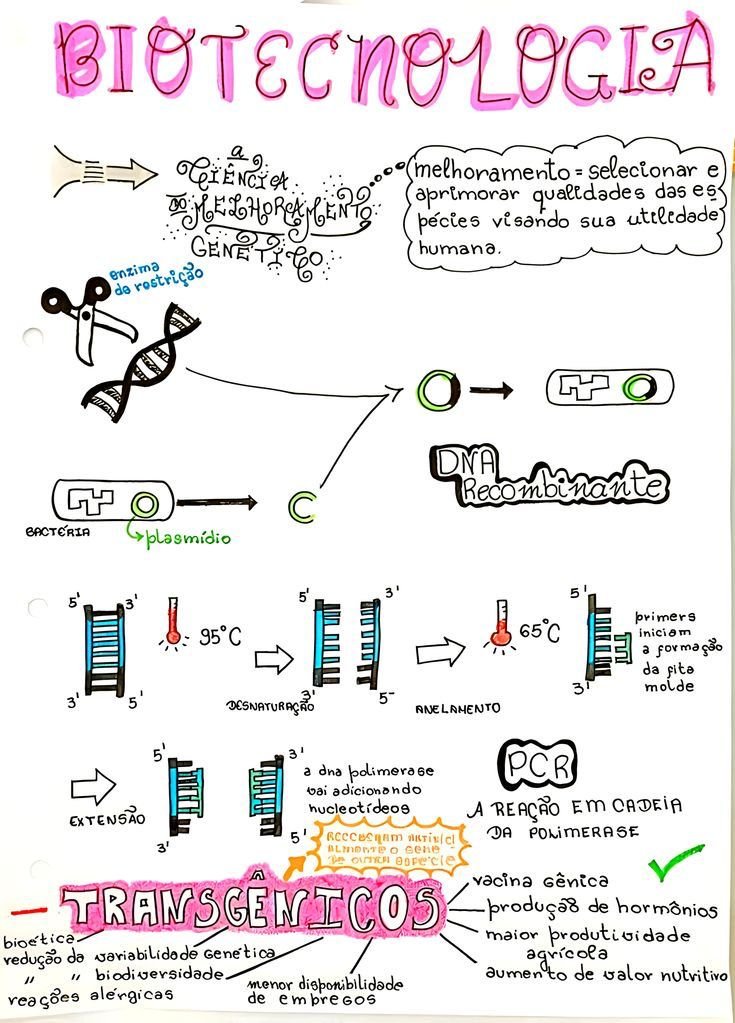 BIOTECNOLOGIA
a
CIÊNCIA
DO MELHORAMENTO
GENÉTICO
melhoramento = selecionar e
aprimorar qualidades das es
pécies visando sua utilidade
humana.
enzima
de restrição
DNA
Recombinante
BACTÉRIA
plasmídio
5' 3'
3' 5'
95°C
DESNATURAÇÃO
5' 3'
3' 5-
ANELAMENTO
65°C
5'
3'
primers
iniciam
a formação
da fita
molde
EXTENSÃO
5' 3'
3' 5'
a dna polimerase
vai adicionando
nucleotídeos
PCR
A REAÇÃO EM CADEIA
DA POLIMERASE
RECEBERAM ARTIFICI
ALMENTE O GENE
DE OUTRA ESPÉCIE
TRANSGÊNICOS
bioética
redução da variabilidade genética
" " biodiversidade
reações alérgicas
menor disponibilidade
de empregos
vacina gênica
produção de hormônios
maior produtividade
agrícola
aumento de valor nutritivo